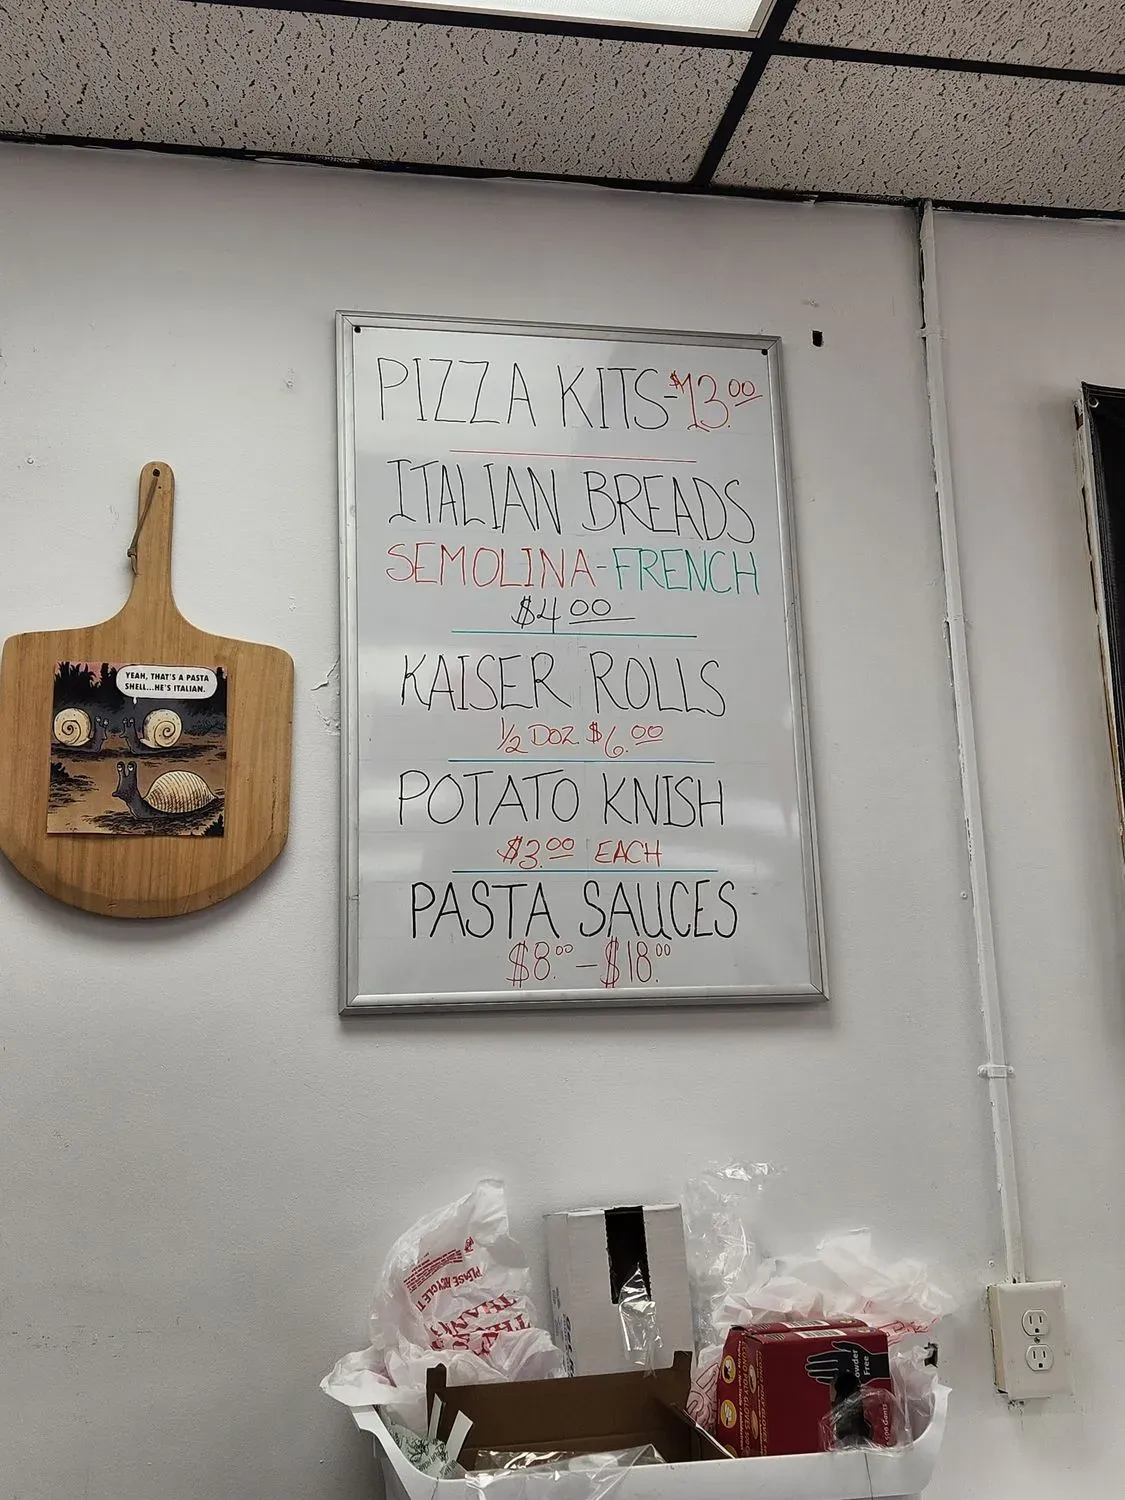 PIZZA KITS-$13.00
ITALIAN BREADS
SEMOLINA-FRENCH
$4.00
KAISER ROLLS
1/2 DOZ. $6.00
POTATO KNISH
$3.00 EACH
PASTA SAUCES
$8.00-$18.00
YEAH, THAT'S A PASTA
SHELL...HE'S ITALIAN.
PLEASE RECYCLE
THANK
Powder
Free